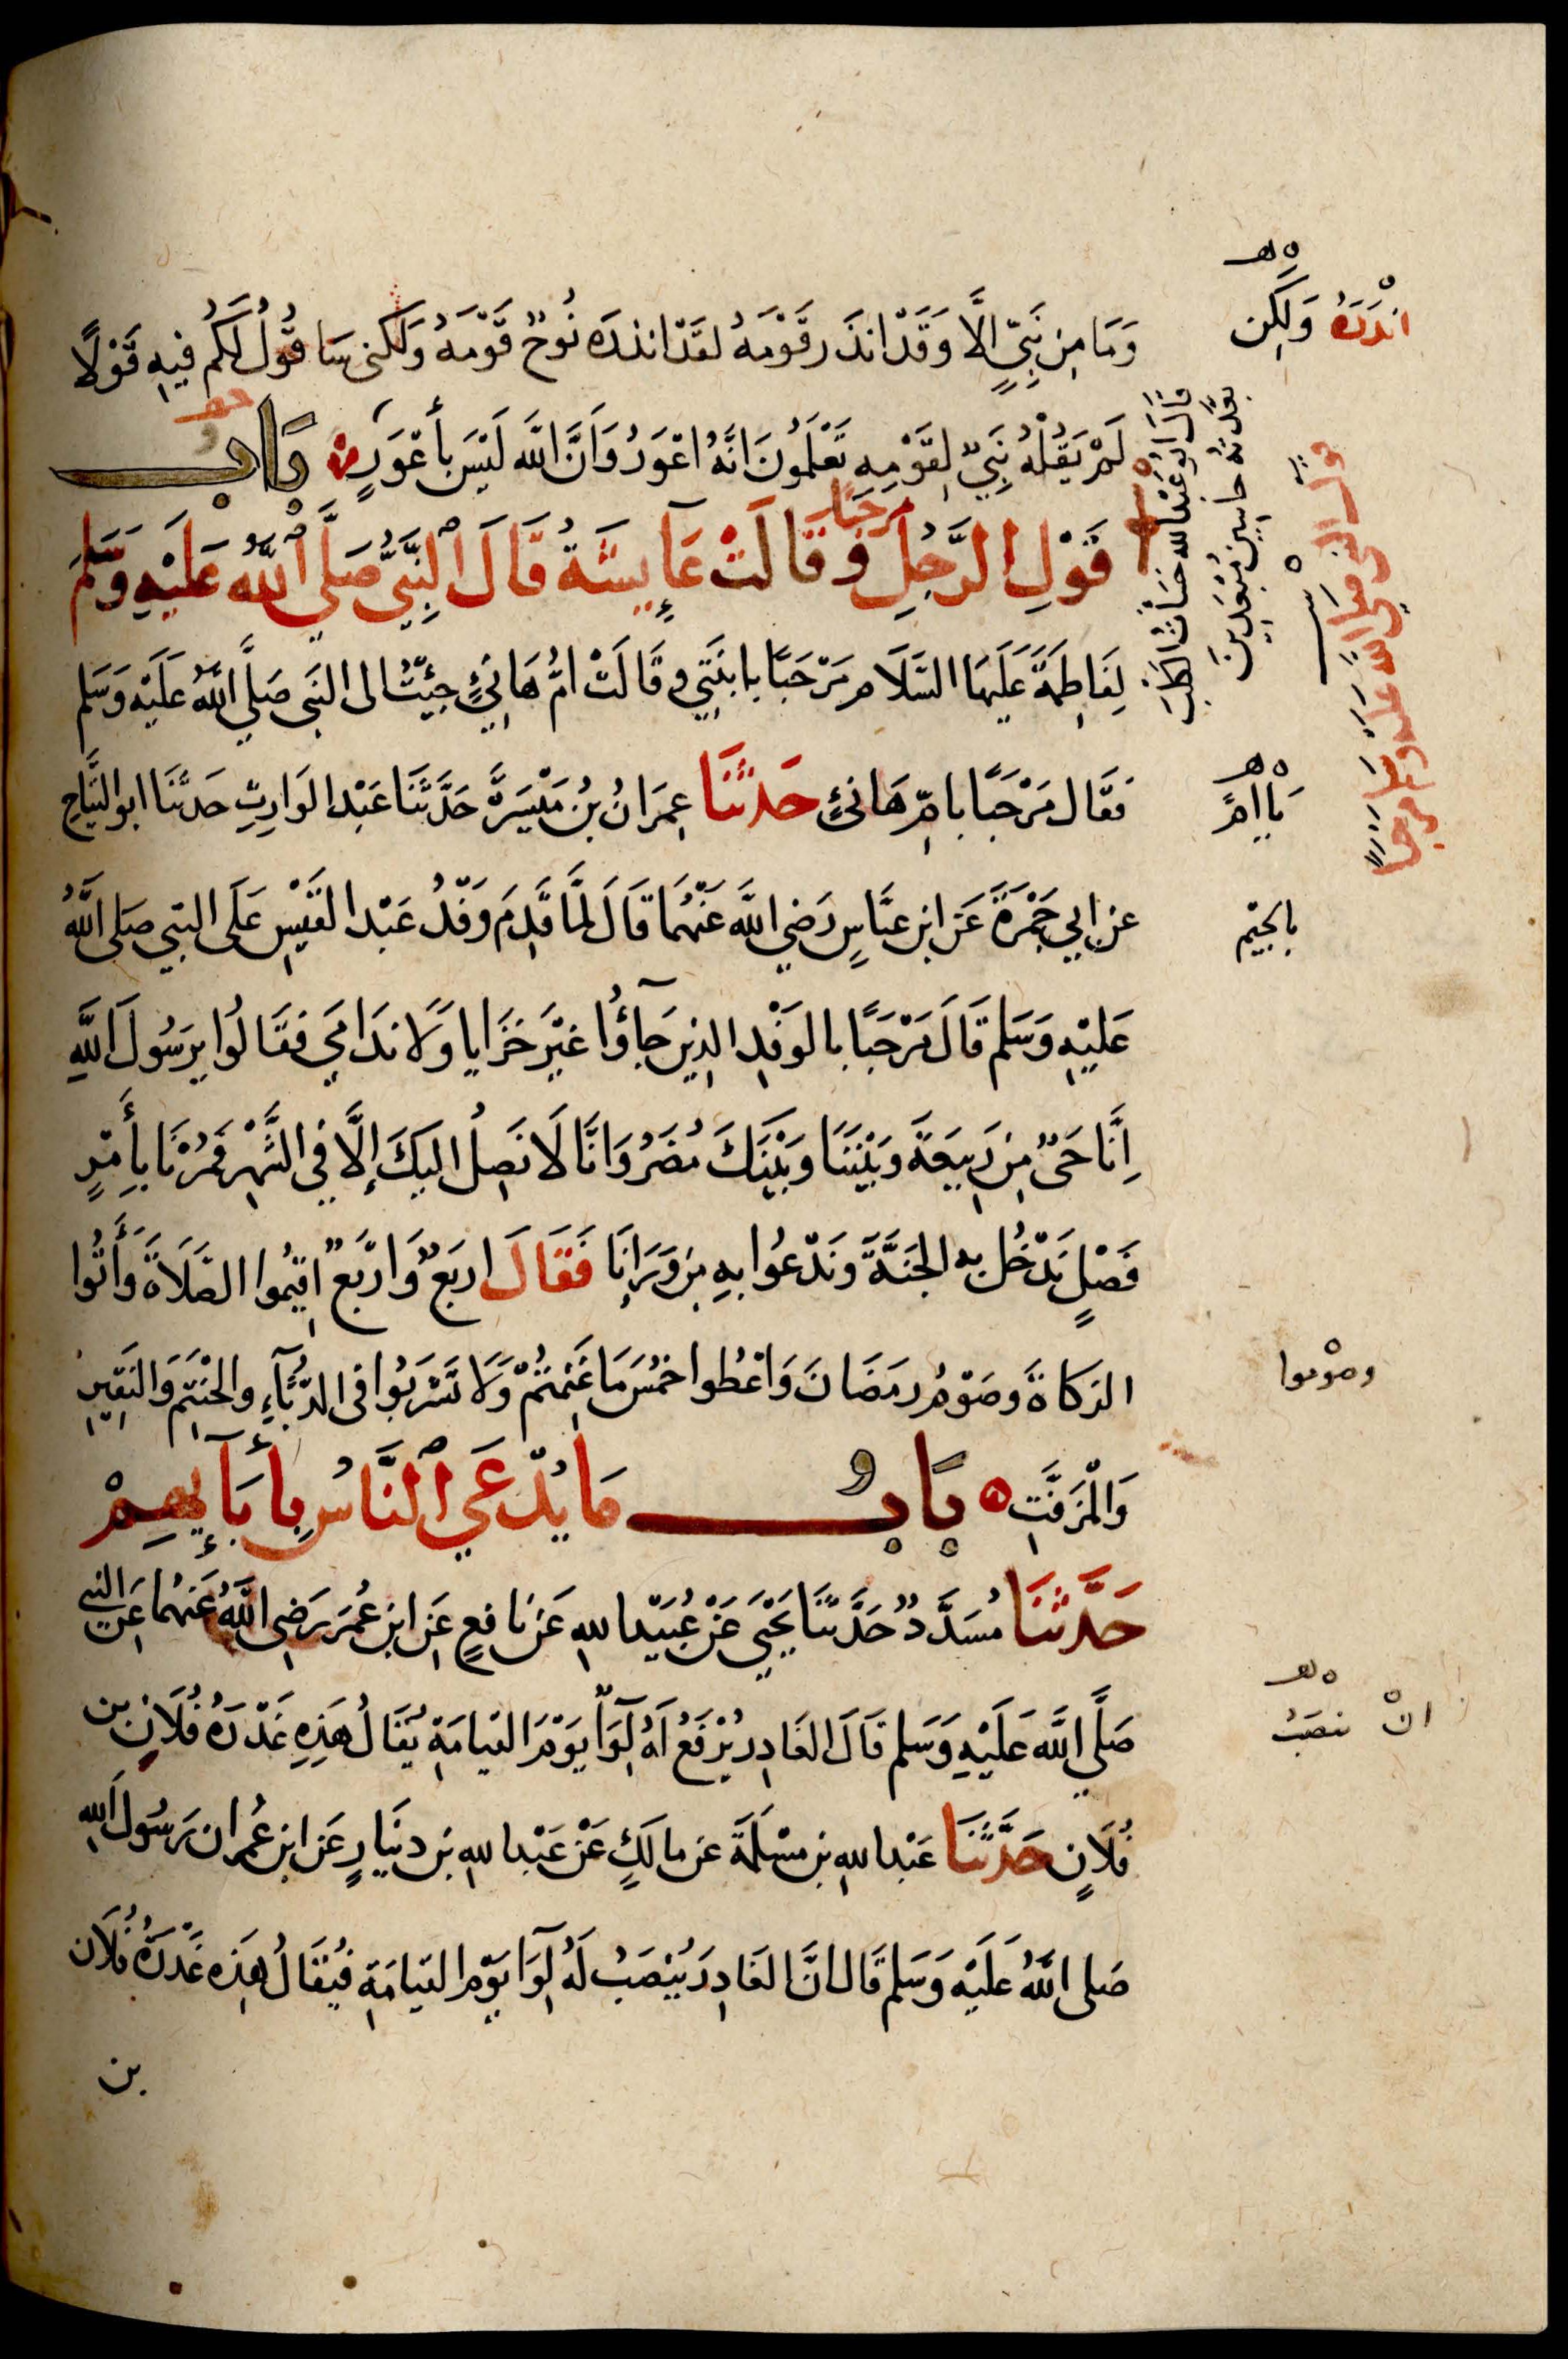 وَمَا مِن نَبِيٍّ اِلَّا وَقَدْ انذَر قَوْمَهُ لقَدْ انذَرَه نُوحٌ قَوْمَهُ وَلَكنى سَاقُولُ لَكُم فِيهِ قَوْلًا
لَمْ يَقُلْهُ نَبِيٌّ لِقَوْمِهِ تَعْلَمُونَ انَّهُ اعْوَرُ وَانَّ اللَّه لَيْسَ بأعْوَرٍ ه بَابُ
قَوْلِ الرَّجُلِ مرحبًا وَقَالَتْ عَايِشَةُ قَالَ النَّبِيُّ صَلَّى اللهُ عَلَيْهِ وَسَلَّمَ
لِفَاطِمَةَ عَلَيهَا السَّلَام مَرْحَبًا بابنَتِي وقَالَتْ امُّ هَانِئٍ جِيْتُ الى النَبى صَلَّى اللَّهُ عَلَيْهِ وَسَلم
فقَال مَرْحَبًا بامِّ هَانئٍ حَدثَنَا عِمرَانُ بْنُ مَيْسَرَةَ حَدَّثَنَا عَبْد الوَارِثِ حَدثَنَا ابو التَيَّاحِ
عن ابِي جَمْرَةَ عَن ابن عبَّاسٍ رَضي اللَّه عَنْهُمَا قَالَ لَمَّا قَدِمَ وَفْدُ عَبْد القَيْسِ عَلَى النبي صَلى اللَّهُ
عَليْهِ وَسَلم قَالَ مَرْحَبًا بالوَفْدِ الذِين جَآؤُا غَيْرَ خَزَايا وَلَا ندَامَي فقَالُوا يرَسُولَ اللَّهِ
اِنَّا حَيٌّ مِن رَبِيعَةَ وَبَيْنَنَا وَبَيْنَكَ مُضَرُ وَانَّا لَا نَصِلُ اليكَ إلَّا فِي الشَّهْرِ فَمُرْنَا بأَمْرٍ
فَصْلٍ نَدْخُل به الجَنَّةَ وَنَدْعُوا بِهِ مَن وَرَانَا فَقَالَ اربَعٌ وَارْبَعٌ اقِيمُوا الصَّلَاةَ وَأتُوا
الزكاةَ وصَوْمُ رمَضَانَ وَاعْطُوا خُمْسَ مَا غَنِمْتُمْ وَلَا تَشْرَبُوا فى الدُّبَّآءِ والحَنْتَمِ وَالنَقِيرِ
وَالْمُزَفَّتِ ه بَابُ مَا يُدْعَي النَّاسُ بِأبَآيِهِمْ
حَدَّثَنَا مُسَدَّدٌ حَدَّثَنَا يَحْيَي عَنْ عُبَيْد اللهِ عَن نَافِعٍ عَنِ ابن عُمَرَ رَضِي اللَّهُ عَنْهُمَا عَن النبي
صَلَّي اللَّه عَلَيْهِ وَسَلم قَالَ الغَادِر يُرْفَعُ لَهُ لِوَآ يَوْمَ القيامَةِ يُقَالُ هَذِهِ غَدْرَةُ فُلَانِ بن
فُلَانٍ حَدَّثَنَا عَبْد اللهِ بن مسْلَمَةَ عن مالكٍ عَنْ عَبْد اللهِ بن دينَارٍ عَن ابن عُمر ان رَسُولَ اللهِ
صَلى اللَّهُ عَلَيْهِ وَسَلم قَال انَّ الغَادِرَ يُنْصَبُ لَهُ لِوَآ يَوْم القيامَةِ فيُقَالُ هَذِه غَدْرَةُ فُلَان
بن
انْذَرَهُ وَلَكِن
قَالَ ابو عَبْد الله خَسَأتُ الكَلبَ
بَعَّدْتُهُ خاسِئِينَ مُبْعَدِينَ
قول النبي صلى الله عليه وسلم مرحبا
يا امَّ
بالجيْم
وصُوْموا
انّ ينصَبُ